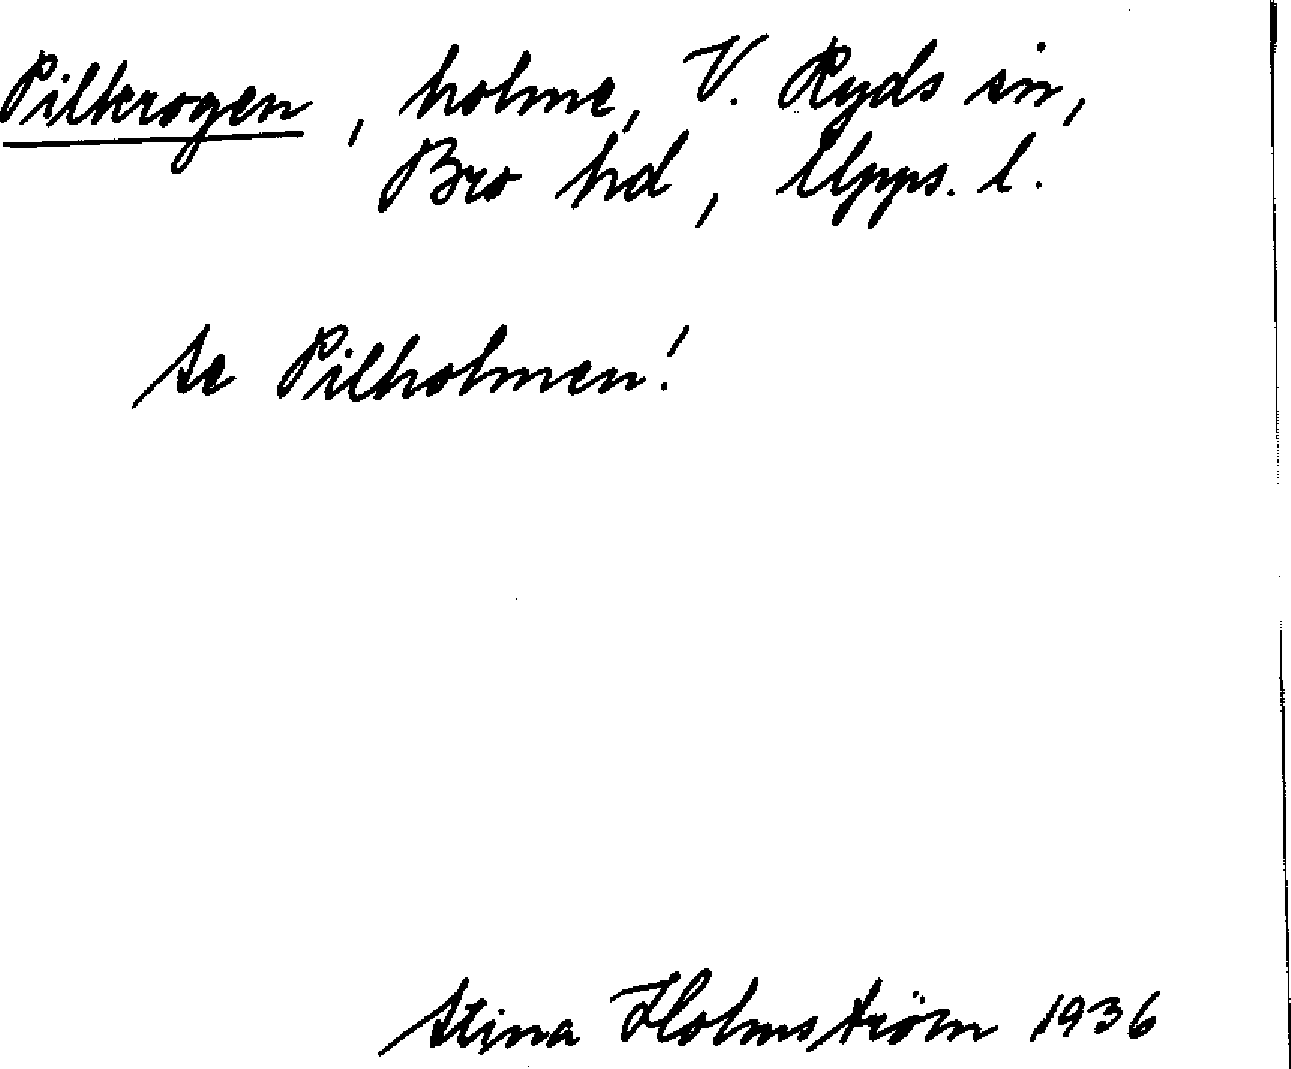 Pilkrogen, holme, V. Ryds sn,
Bro hd, Upps. l.
se Pilholmen!
Stina Holmström 1936